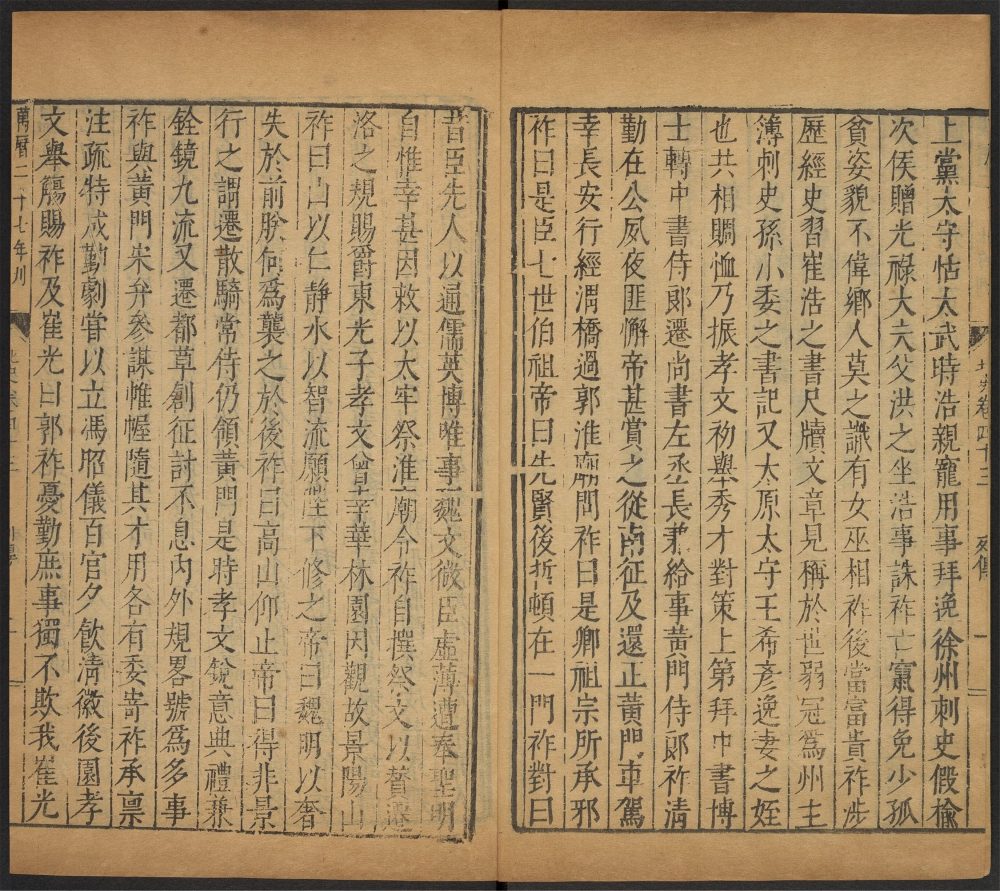 上黨太守怙太武時浩親寵用事拜逸徐州刺史假榆
次侯贈光祿大夫父洪之坐浩事誅祚亡竄得免少孤
貧姿貌不偉鄉人莫之識有女巫相祚後當富貴祚涉
歷經史習崔浩之書尺牘文章見稱於世弱冠爲州主
簿刺史孫小委之書記又太原太守王希彥逸妻之姪
也共相賙恤乃振孝文初舉秀才對策上第拜中書博
士轉中書侍郎遷尚書左丞長兼給事黃門侍郎祚清
勤在公夙夜匪懈帝甚賞之從南征及還正黃門車駕
幸長安行經渭橋過郭淮廟問祚曰是卿祖宗所承邪
祚曰是臣七世伯祖帝曰先賢後哲頓在一門祚對曰
昔臣先人以通儒英博唯事魏文微臣虛薄遭奉聖明
自惟幸甚因敕以太牢祭淮廟令祚自撰祭文以贊遷
洛之規賜爵東光子孝文曾幸華林園因觀故景陽山
祚曰山以仁靜水以智流願陛下修之帝曰魏明以奢
失於前朕何爲襲之於後祚曰高山仰止帝曰得非景
行之謂遷散騎常侍仍領黃門是時孝文銳意典禮兼
銓鏡九流又遷都草創征討不息內外規畧號爲多事
祚與黃門宋弁參謀帷幄隨其才用各有委寄祚承稟
注疏特成勤劇嘗以立馮昭儀百官夕飲清徽後園孝
文舉觴賜祚及崔光曰郭祚憂勤庶事獨不欺我崔光
萬曆二十七年刊
北史卷四十三
列傳
一